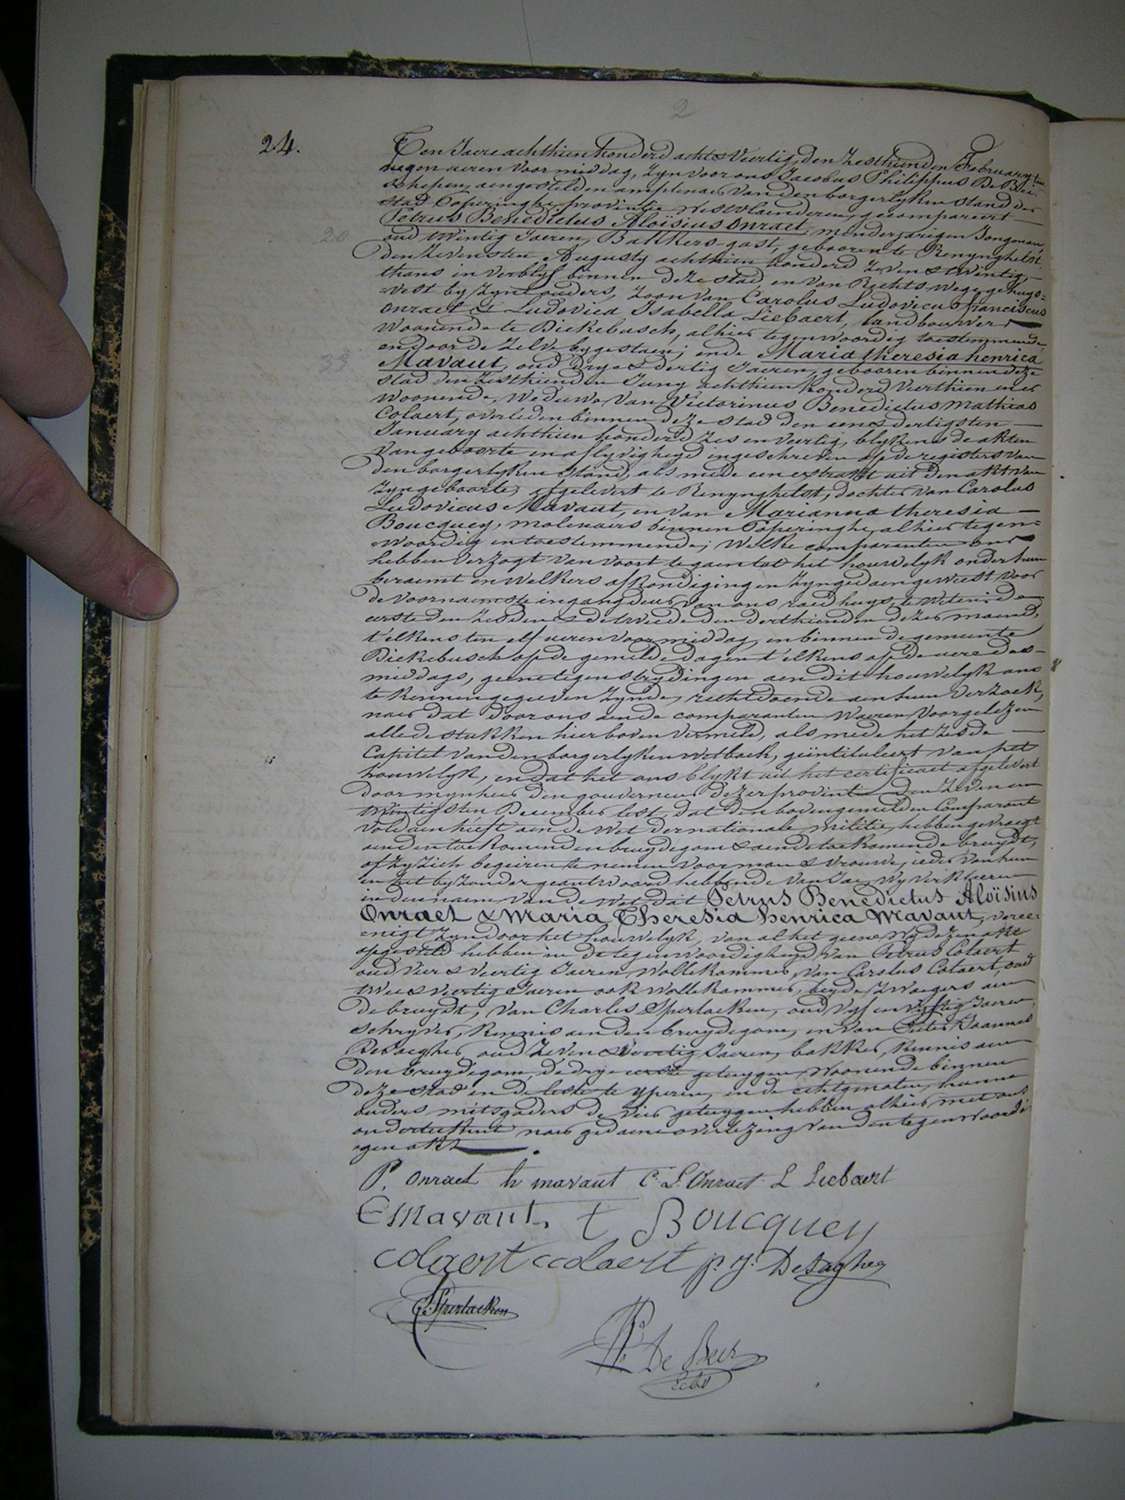 2
24.
Ten Jaere achthien honderd acht & veertig, den zesthienden February, ten
negen ueren voor middag, zyn voor ons Jacobus Philippus De Beir
schepen, aengestelden amptenaer van den borgerlyken stand der
stad Poperinghe, provintie Westvlaenderen, gecompareert
Petrus Benedictus Aloïsius Onraet, minderjarigen Jongman
oud twintig Jaeren, Bakkers-gast, geboren te Renynghelst
den zevensten Augusty achthien honderd zeven & twintig,
thans in verblyf binnen deze stad en van Rechtswege gehuys-
-vest by zyne ouders, zoon van Carolus Ludovicus franciscus
Onraet & Ludovica Isabella Liebaert, landbouwers
woonende te Dickebusch, alhier tegenwoordig toestemmende
en door de zelve bygestaen; ende Maria theresia henrica
Mavaut, oud drye & dertig Jaeren, geboren binnen deze
stad den zesthienden Juny achthien honderd veerthien en er
woonende, Weduwe van Victorinus Benedictus Mathias
Colaert, overleden binnen deze stad den een & dertigsten
January achthien honderd zes en veertig, blykens de akten
van geboorte en aflyvigheyd ingeschreven op de registers van
den borgerlyken stand, als mede een extrakt uit den akt van
zyn geboorte, afgelevert te Renynghelst, dochter van Carolus
Ludovicus Mavaut, en van Marianna theresia
Boucquey, molenaers binnen Poperinghe, alhier tegen-
woordig en toestemmende; Welke comparanten ons
hebben verzogt van voort te gaen tot het houwelyk onder hun
beraemt en welkers afkondigingen zyn gedaen geweest voor
de voornaemste ingangdeur van ons raedhuys, te weten: de
eerste den zesden & de tweede den derthienden dezer maend,
t'elkens ten elf ueren voor middag, en binnen de gemeente
Dickebusch op de gemelde dagen t'elkens op de uere des
middags, geene tegenstrydingen aen dit houwelyk ons
te kennen gegeven zynde, rechtdoende aen hun verzoek,
naer dat door ons aen de comparanten waeren voorgelezen
alle de stukken hier boven vermeld, als mede het zesde
Capitel van den borgerlyken wetboek, geïntituleert van het
houwelyk, en dat het ons blykt uit het certificaet afgelevert
door mynheer den gouverneur dezer provintie den zeven en
twintigsten December lest, dat den bovengemelden Comparant
voldaen heeft aen de Wet der nationale militie, hebben gevraegt
aen den toekomenden bruydegom & aen de toekomende bruydt,
of zy zich begeiren te nemen voor man & vrouwe, ieder van hun
in het byzonder geantwoord hebbende van Ja, Wy verklaeren
in den naem van de Wet, dat Petrus Benedictus Aloïsius
Onraet & Maria Theresia henrica Mavaut, vereе-
enigt zyn door het houwelyk, van al het geene wy dezen akt
opgesteld hebben in de tegenwoordigheyd van Petrus Colaert
oud vier & veertig Jaeren, Wollekammer, van Carolus Colaert, oud
twee & veertig Jaeren ook Wollekammer, beyde zwaegers aen
de bruydt; van Charles Sperlaeken, oud vyf en vyftig Jaeren
schryver, kennis aen den bruydegom, en van Pieter Joannes
Desaegher oud zeven & veertig Jaeren, bakker, kennis aen
den bruydegom, de drye eerste getuygen, woonende binnen
deze stad en de leste te Yperen, en de echtgenoten, hunne
ouders mitsgaders de vier getuygen hebben alhier met ons
onderteekent naer gedaene overlezing van den tegenwoordi-
gen akt.
P. Onraet h mavaut C. L. Onraet L Liebaert
C Mavaut, t Boucquey
colaert c colaert p. J. DeSaghe
C. Sperlaeken
Ph De Beir